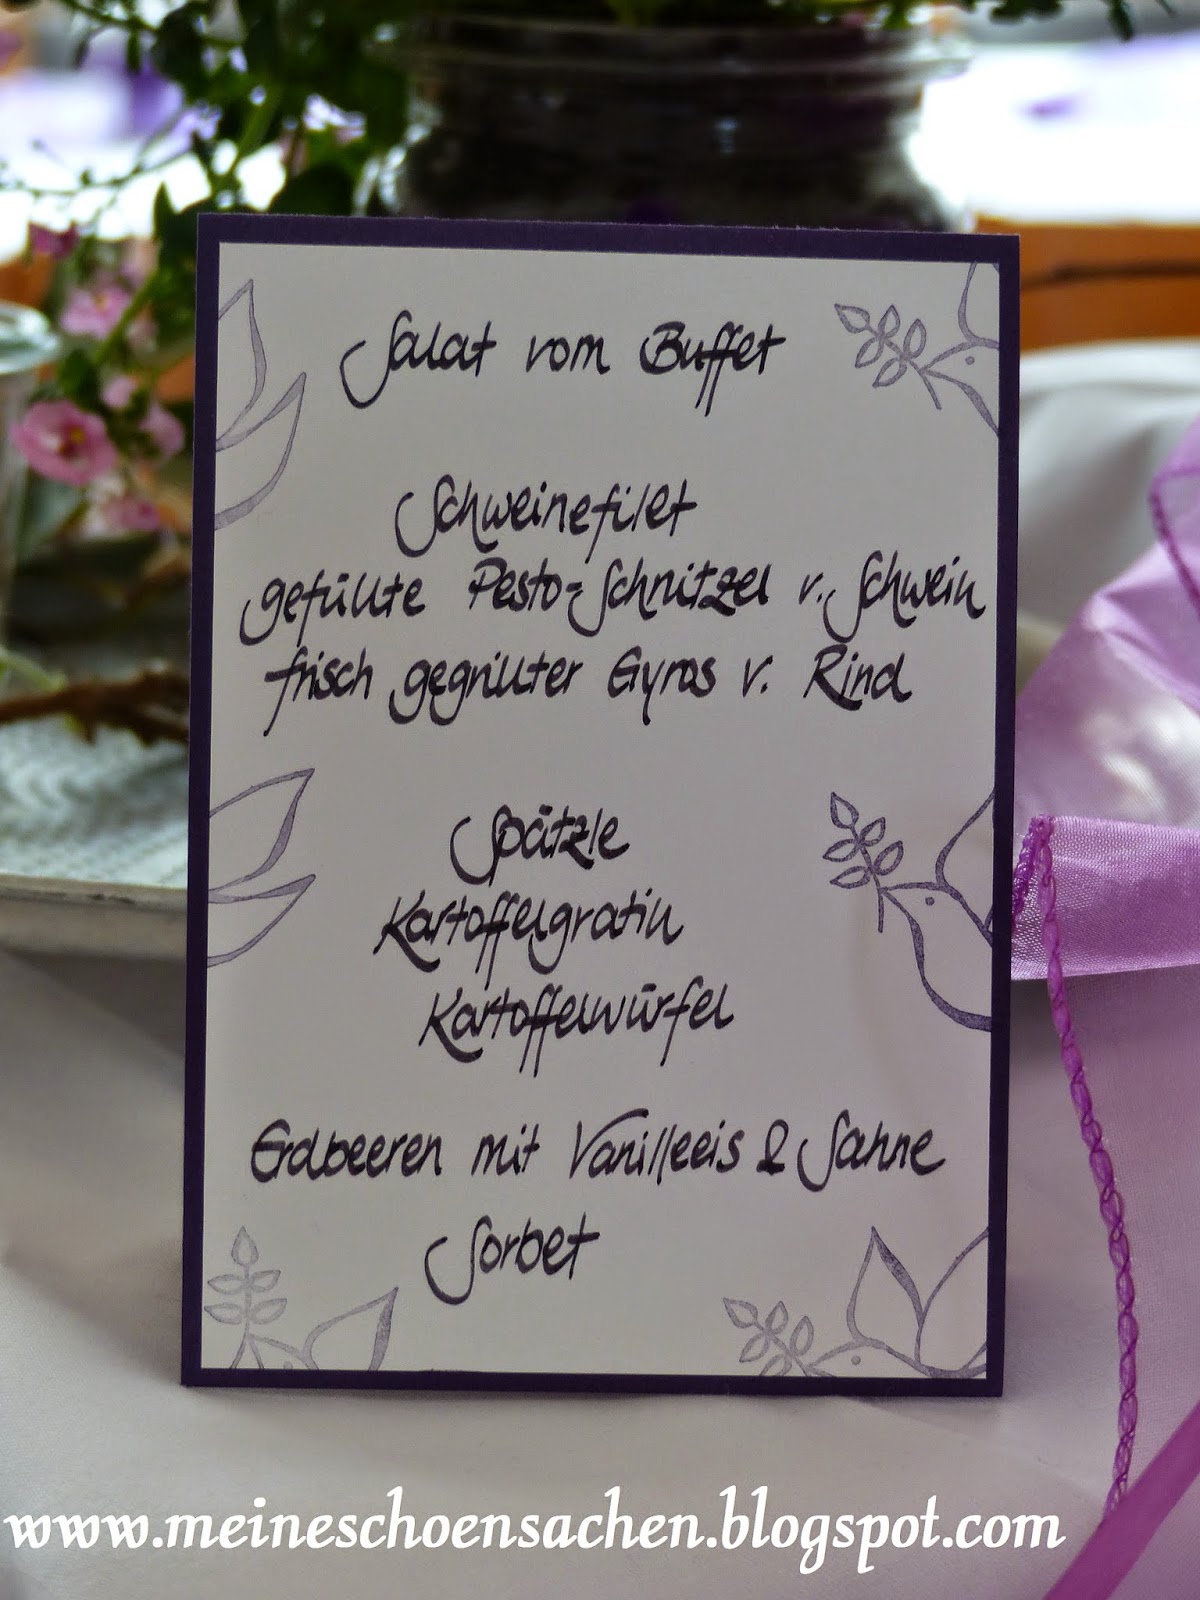 Salat vom Buffet
Schweinefilet
gefüllte Pesto-Schnitzel v. Schwein
frisch gegrillter Gyros v. Rind
Spätzle
Kartoffelgratin
Kartoffelwürfel
Erdbeeren mit Vanilleeis & Sahne
Sorbet
www.meineschoensachen.blogspot.com